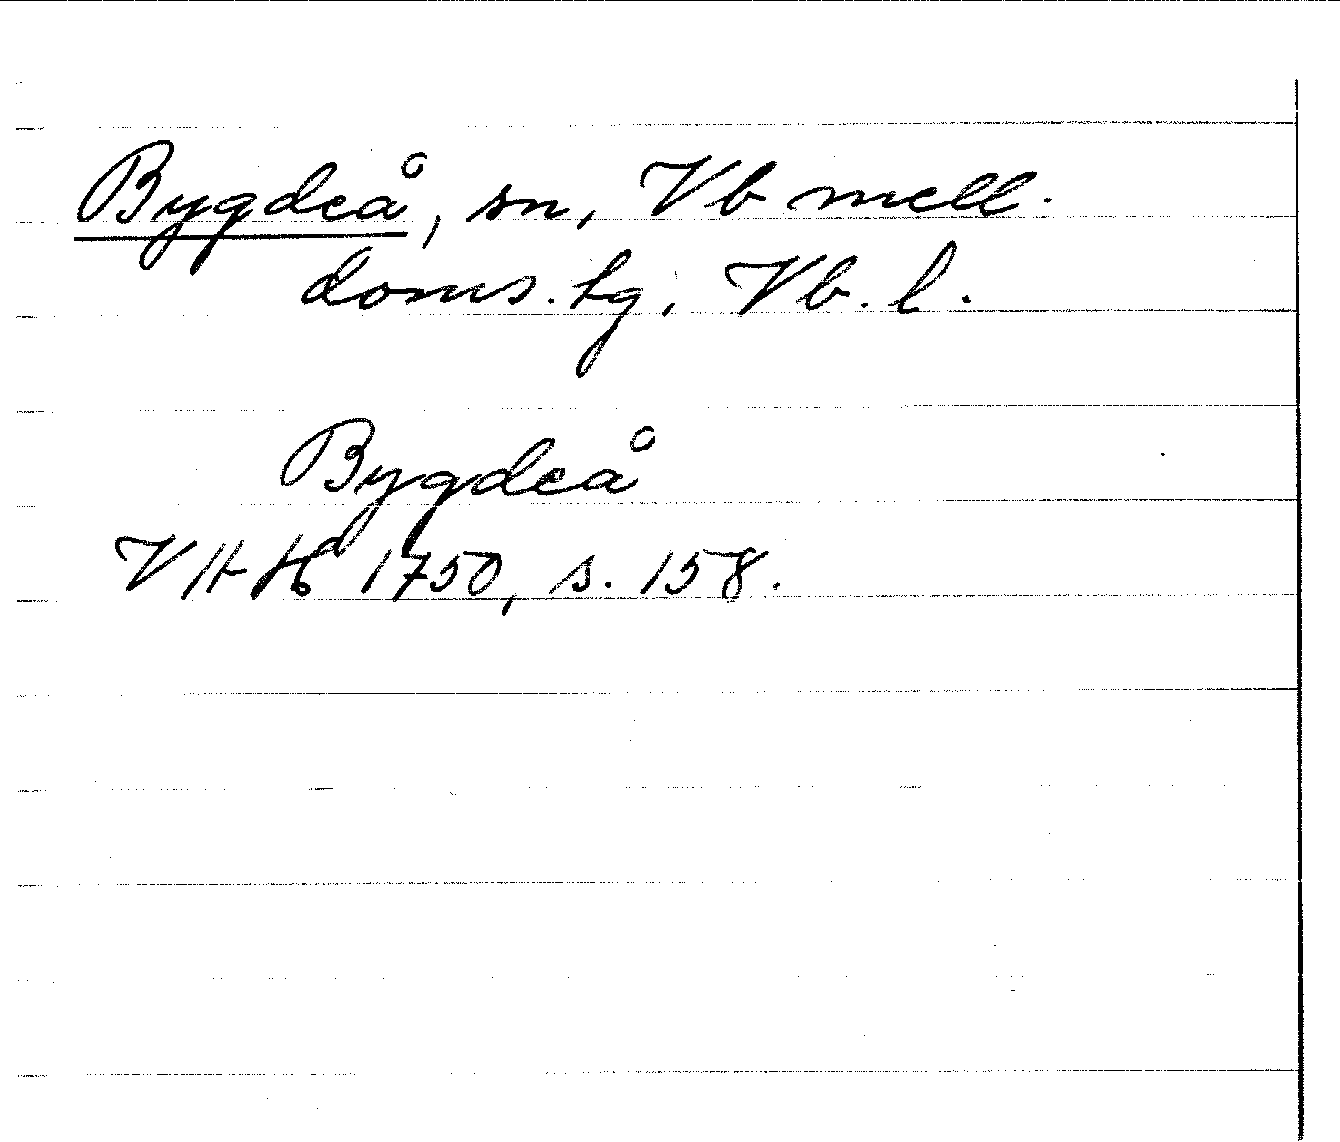 Bygdeå, sn, Vb mell.
doms. tg, Vb. l.
Bygdeå
1750, s. 158.